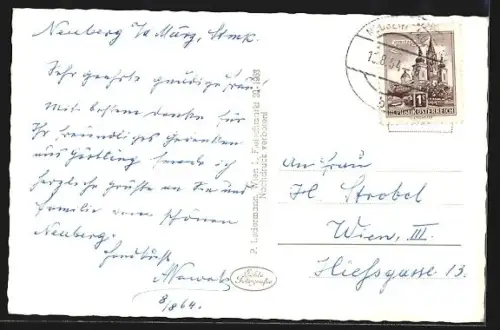 Neuberg a/d Mürz, Stmk.
Sehr geehrte gnädige Frau!
Mit bestem Danke für
Ihr freundliches Gedenken
aus Göstling sende ich
herzliche Grüße an Sie und
Familie vom schönen
Neuberg.
Handkuß
8/8 64.
P. Ledermann, Wien I., Fleischmarkt
Nachdruck verboten!
Echte
Fotografie
8.64
S1
REPUBLIK ÖSTERREICH
An Frau
H. Strobel
Wien, III.
Hießgasse 13.